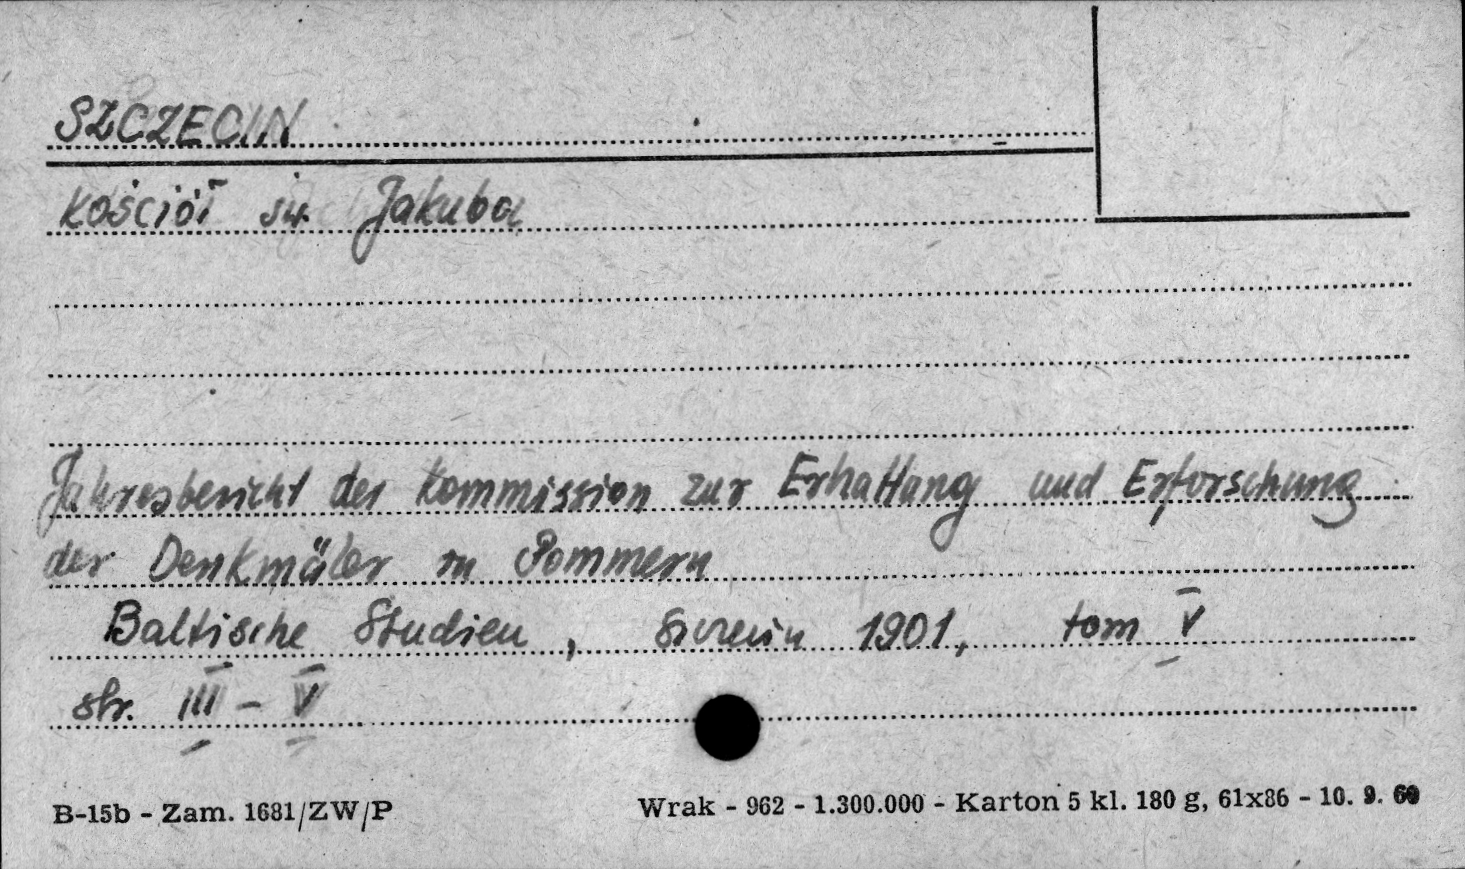 SZCZECIN
kościół św. Jakuba
Jahresbericht der Kommission zur Erhaltung und Erforschung
der Denkmäler in Pommern
Baltische Studien, Szczecin 1901, tom V
str. III - V
B-15b - Zam. 1681/ZW/P
Wrak - 962 - 1.300.000 - Karton 5 kl. 180 g, 61x86 - 10. 9. 60